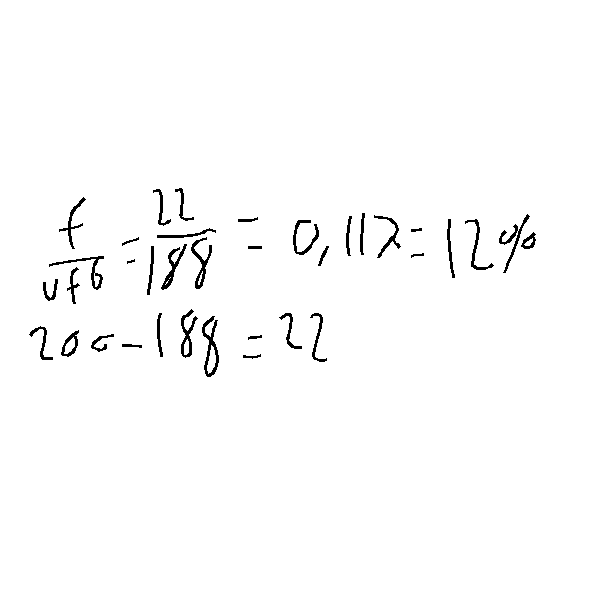 f/vf6 = 22/188 = 0,117 = 12%
200 - 188 = 22